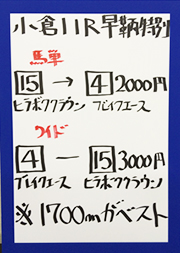 小倉11R早鞆特別
馬単
15→4 2000円
ヒラボククラウン ブレイクエース
ワイド
4―15 3000円
ブレイクエース ヒラボククラウン
※1700mがベスト